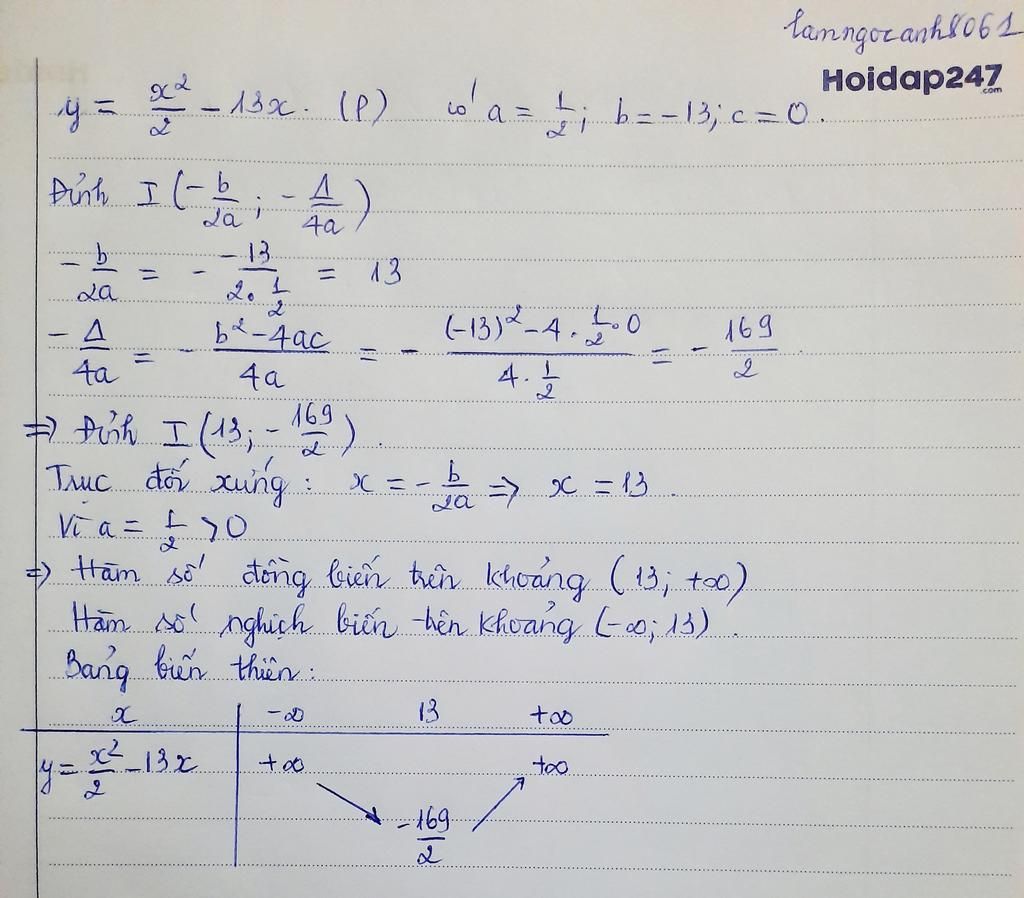 lamngocanh8061
Hoidap247
.com
y = x²/2 - 13x. (P) có a = 1/2; b = -13; c = 0.
Đỉnh I (-b/2a; -Δ/4a)
-b/2a = - -13/(2.1/2) = 13
-Δ/4a = - (b² - 4ac)/4a = - ((-13)² - 4.1/2.0)/(4.1/2) = - 169/2.
=> Đỉnh I (13; -169/2).
Trục đối xứng: x = -b/2a => x = 13.
Vì a = 1/2 > 0
=> Hàm số đồng biến trên khoảng (13; +∞)
Hàm số nghịch biến trên khoảng (-∞; 13).
Bảng biến thiên:
x -∞ 13 +∞
y = x²/2 - 13x +∞ +∞
-169/2